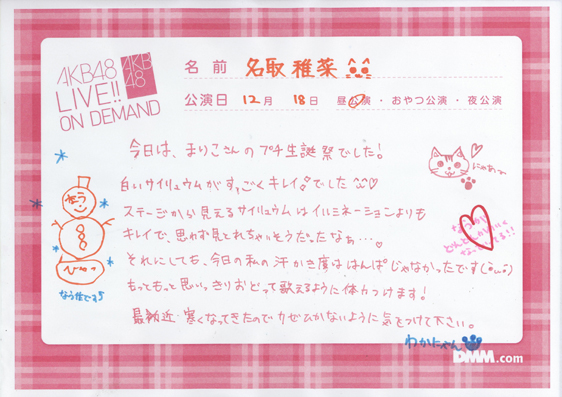 AKB48
LIVE!!
ON DEMAND
AKB
48
名前 名取 稚菜
公演日 12月 18日 昼公演・おやつ公演・夜公演
今日は、まりこさんのプチ生誕祭でした!
白いサイリュウムがすっごくキレイでした
ステージから見えるサイリュウムはイルミネーションよりも
キレイで、思わず見とれちゃいそうだったなぁ…
それにしても、今日の私の汗かき度ははんぱじゃなかったです(・ω・)
もっともっと思いっきりおどって歌えるように体力つけます!
最近寒くなってきたのでカゼひかないように気をつけて下さい。
にゃあ〜
わかにゃん
DMM.com